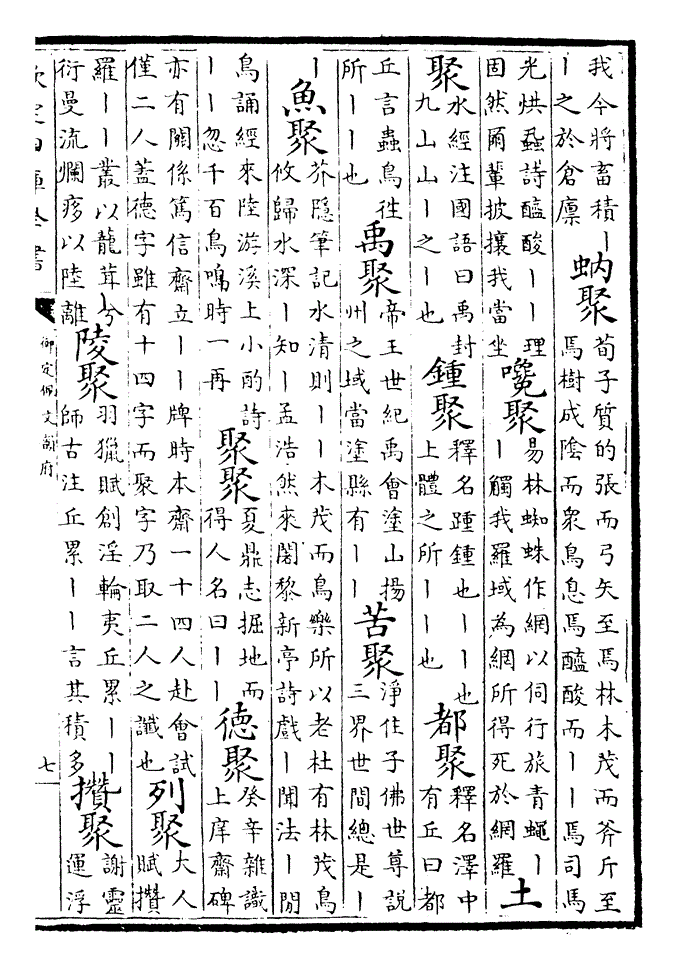 我今將畜積｜｜之於倉廩 蚋聚 荀子質的張而弓矢至焉林木茂而斧斤至焉樹成陰而衆鳥息焉醯酸而｜｜焉司馬
光烘蝨詩醯酸｜｜理固然爾輩披攘我當坐 嚵聚 易林蜘蛛作網以伺行旅青蠅｜｜觸我羅域為網所得死於網羅 土
聚 水經注國語曰禹封九山山｜之｜也 鍾聚 釋名踵鍾也｜｜也上體之所｜｜也 都聚 釋名澤中有丘曰都
丘言蟲鳥徃所｜｜也 禹聚 帝王世紀禹會塗山揚州之域當塗縣有｜｜ 苦聚 淨住子佛世尊說三界世間總是｜
｜ 魚聚 芥隱筆記水清則｜｜木茂而鳥樂所以老杜有林茂鳥攸歸水深｜知｜孟浩然來闍黎新亭詩戲｜聞法｜閒
鳥誦經來陸游溪上小酌詩｜｜忽千百鳥鳴時一再 聚聚 夏鼎志掘地而得人名曰｜｜ 德聚 癸辛雜識上庠齋碑
亦有闗係篤信齋立｜｜牌時本齋一十四人赴會試僅二人葢德字雖有十四字而聚字乃取二人之讖也 列聚 大人賦攢
羅｜｜叢以龍茸｜兮衍曼流爛痑以陸離 陵聚 羽獵賦創淫輪夷丘累｜｜師古注丘累｜｜言其積多 攢聚 謝靈運浮
欽定四庫全書
御定佩文韻府
七